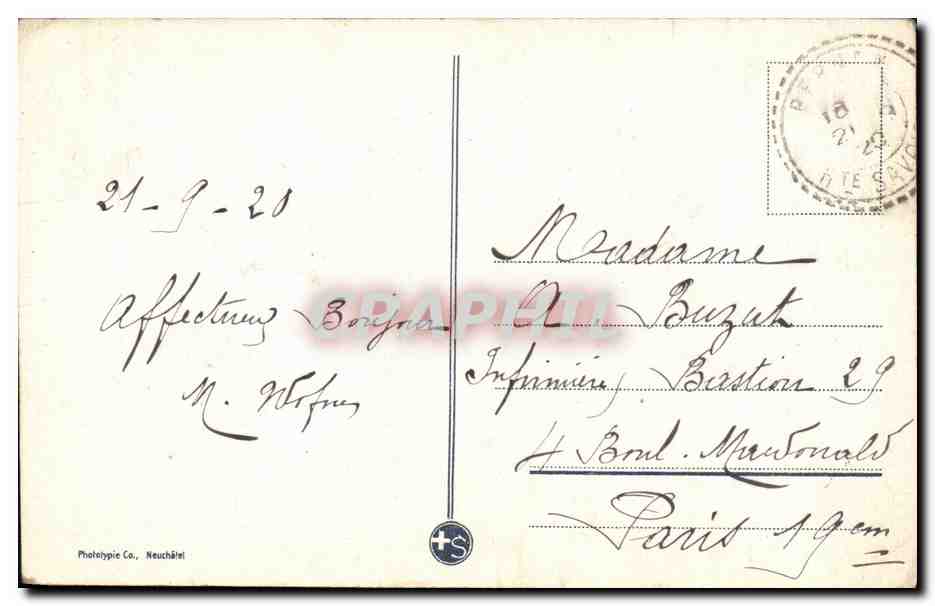 21-9-20
Affectueux Bonjour
M.
Madame
A. Buzut
Infirmière, Bastion 29
4 Boul. Macdonald
Paris 19em
HTE SAVOIE
GRAPHIL
+S
Phototypie Co., Neuchâtel